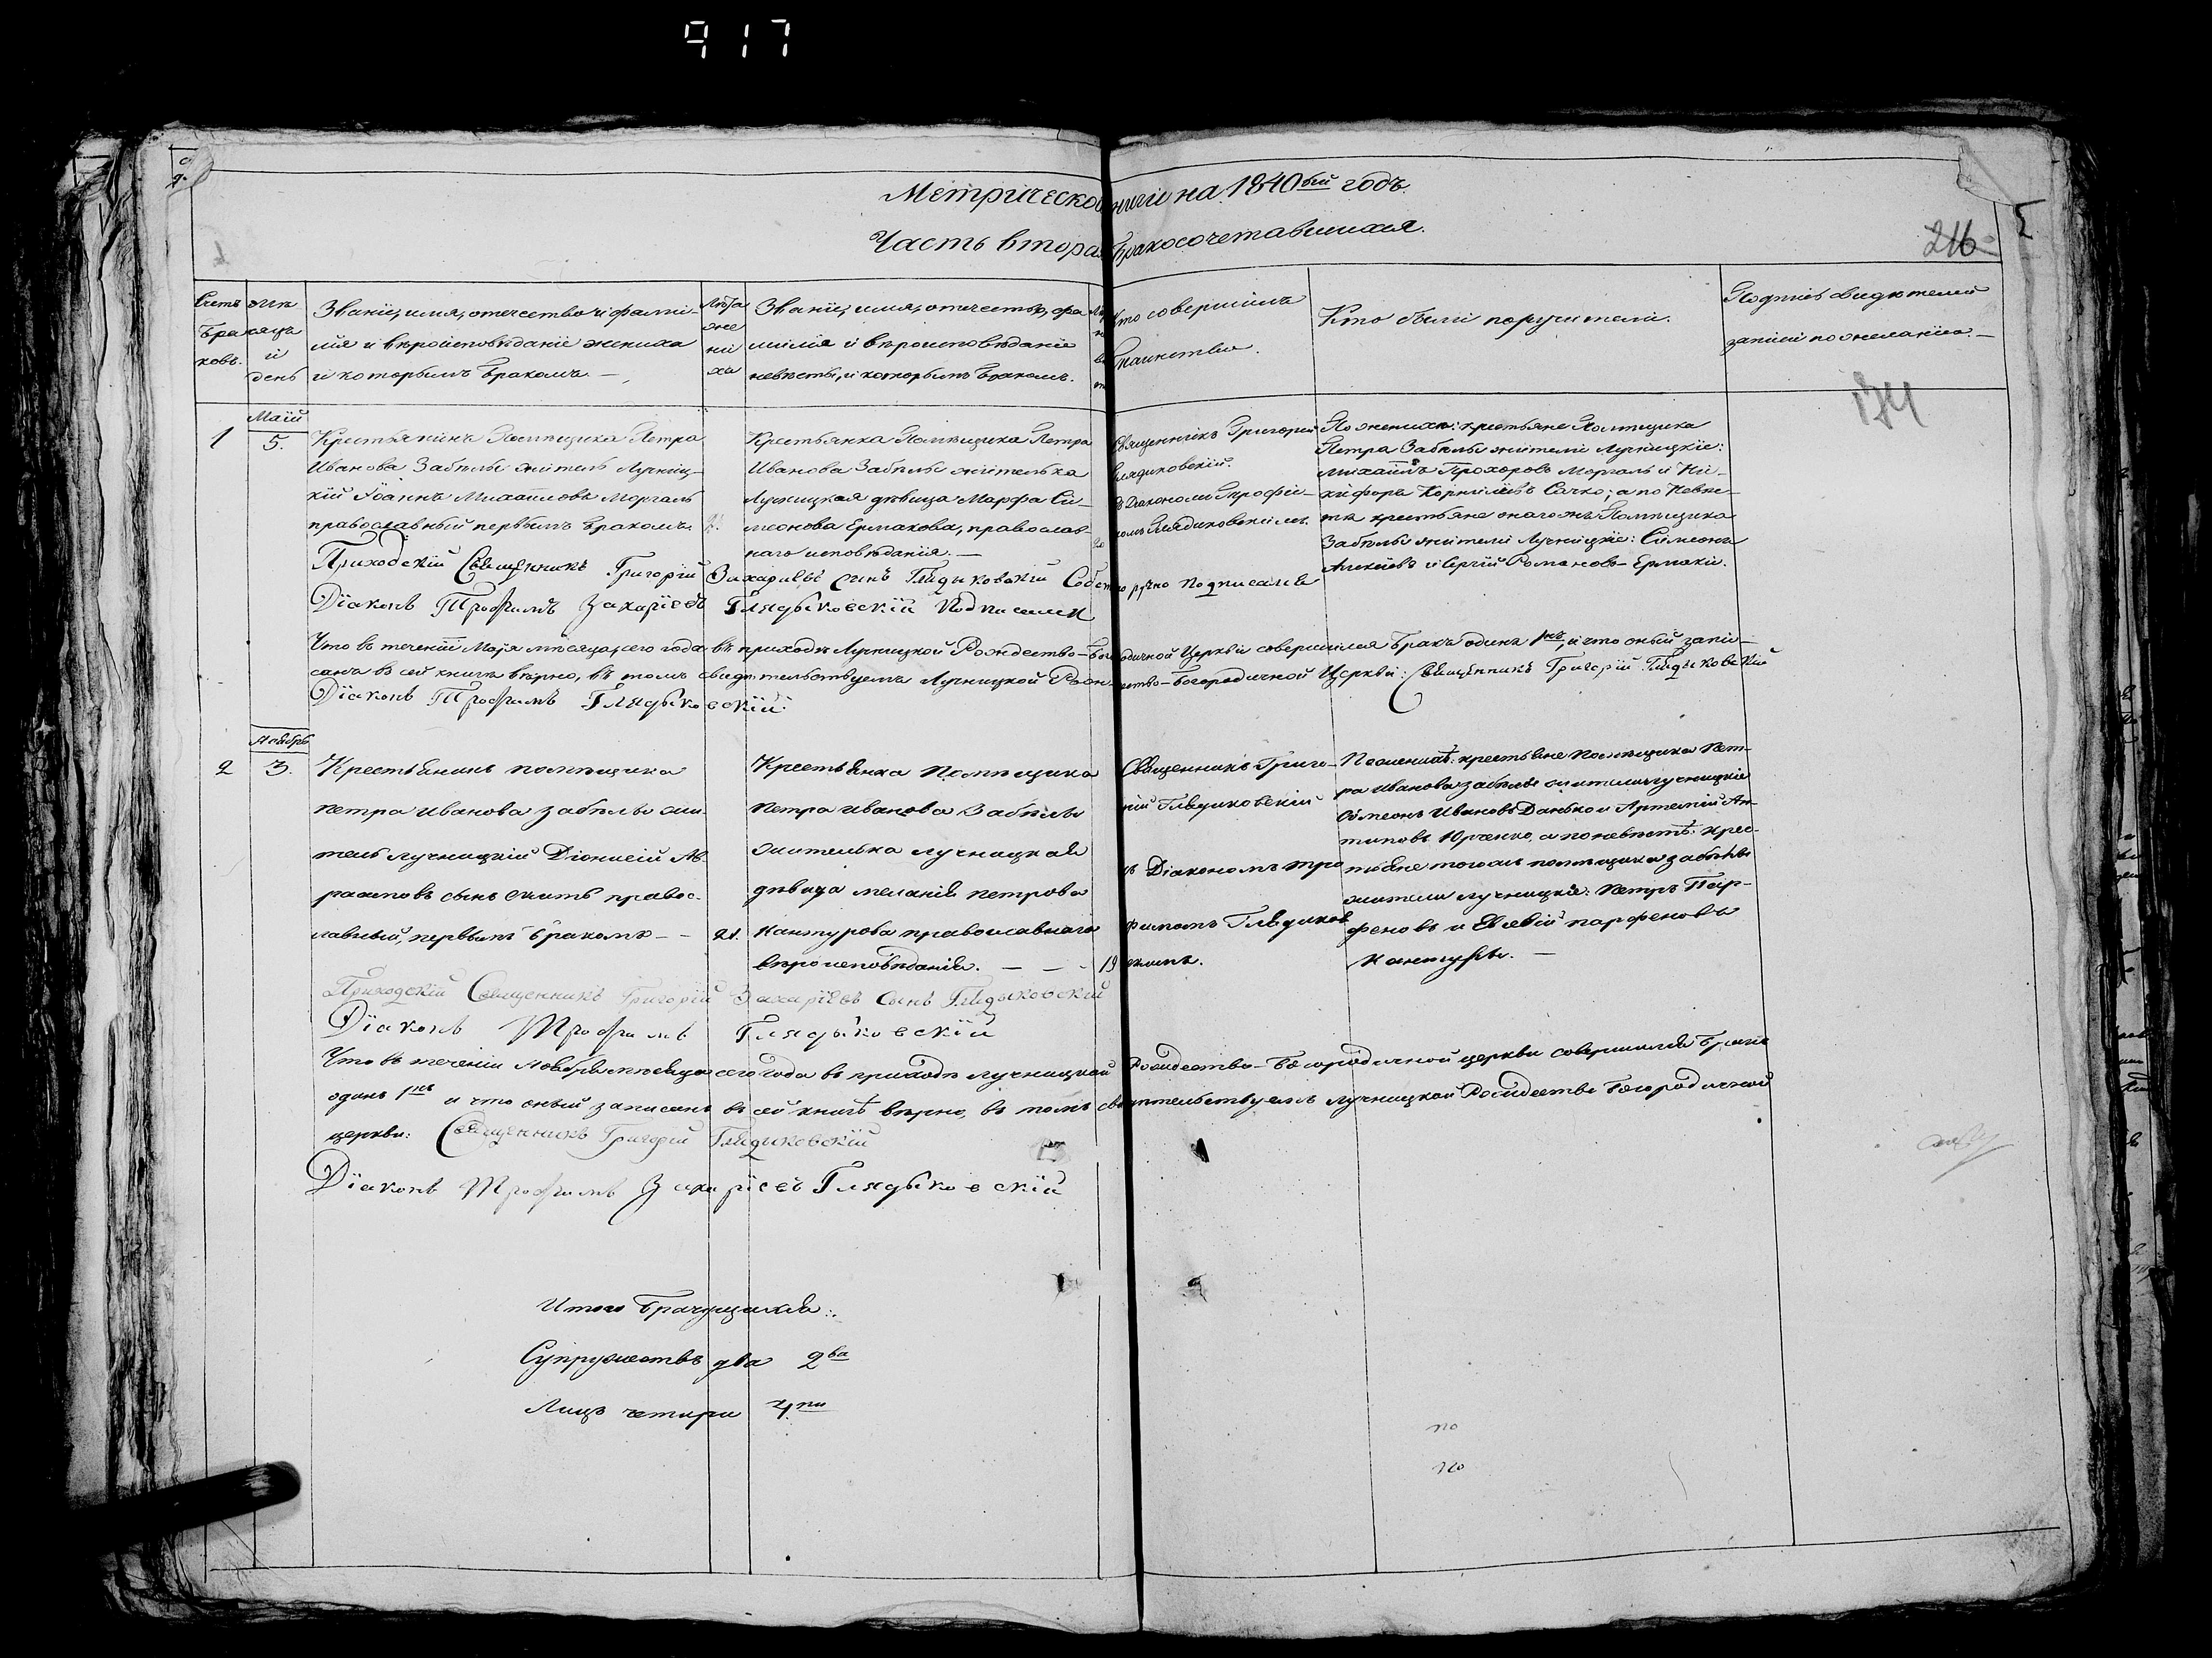 917
Метрической книги на 1840ый годъ.
Часть вторая Бракосочетавшихся.
216
Счетъ Браковъ.
Мѣсяцъ и день
Званіе, имя, отечество и фамилія и вѣроисповѣданіе жениха и которымъ бракомъ.—
Лѣта жениха
Званіе, имя, отечество, фамилія и вѣроисповѣданіе невѣсты, и которымъ бракомъ.
Кто совершилъ Таинство.
Кто были поручители.
Подпись свидѣтелей записи по желанію.—
174
Маій
1
5.
Крестьянинъ Помѣщика Петра
Иванова Забѣлы житель Лучниц-
кій Іоаннъ Михайловъ Моргаль
православный первымъ бракомъ.
Крестьянка Помѣщика Петра
Иванова Забѣлы жителька
Лучницкая дѣвица Марфа Си-
меонова Ермакова, православ-
наго исповѣданія.—
20
Священникъ Григорій
Глядиковскій.
съ Діакономъ Трофи-
момъ Глядиковскимъ.
По женихѣ: крестьяне Помѣщика
Петра Забѣлы жители Лучницкіе:
Михаилъ Прохоровъ Моргаль и Ни-
кифоръ Корниліевъ Сачко; а по Невѣс-
тѣ крестьяне онагожъ Помѣщика
Забѣлы жители Лучницкіе: Симеонъ
Алексіевъ и Сергій Романовъ Ермаки.
Приходскій Священникъ Григорій Захаріевъ сынъ Глядыковскій Собственно ручно подписался
Діаконъ Трофимъ Захаріевъ Глядыковскій Подписался
Что въ теченіи Маія мѣсяца, сего года въ приходѣ Лучницкой Рождество-Богородичной Церкви совершился Бракъ одинъ 1нъ, и что оный запи-
санъ въ сей книгѣ вѣрно, въ томъ свидѣтельствуемъ Лучницкой Рождество-Богородичной Церкви: Священникъ Григорій Глядыковскій
Діаконъ Трофимъ Глядыковскій
Ноябрь
2
3.
Крестьянинъ помѣщика
петра Иванова забѣлы жи-
тель лучницкій Діонисій Ав-
раамовъ сынъ правос-
лавный, первымъ бракомъ — —
21.
Крестьянка Помѣщика
петра иванова Забѣлы
жителька лучницкая
дѣвица меланія петрова
Кантурова православнаго
вѣроисповѣданія. — — -
19
Священникъ Григо-
рій Глядиковскій
съ Діакономъ Тро
фимомъ Глядиков
скимъ.
По женихѣ: крестьяне Помѣщика Пет-
ра Иванова забѣлы жители лучницкіе
Симеонъ Ивановъ Данько и Артемій Ан-
типовъ Юрченко, а по невѣстѣ: крес-
тьяне тогожъ помѣщика забѣлы
жители лучницкіе: Петръ Пар-
феновъ и Евсевій парфеновъ
Кантуры. —
Приходскій Священникъ Григорій Захаріевъ сынъ Глядыковскій
Діаконъ Трофимъ Глядыковскій
Что въ теченіи Ноября мѣсяца сего года въ приходѣ лучницкой Рождество-Богородичной церкви совершился Бракъ
одинъ 1нъ и что оный записанъ въ сей книгѣ вѣрно, въ томъ свидѣтельствуемъ лучницкой Рождество Богородичной
церкви: Священникъ Григорій Глядиковскій
Діаконъ Трофимъ Захаріевъ Глядыковскій
Итого Брачущихся:
Супружествъ два 2ва
Лицъ четыри 4ри
по
по